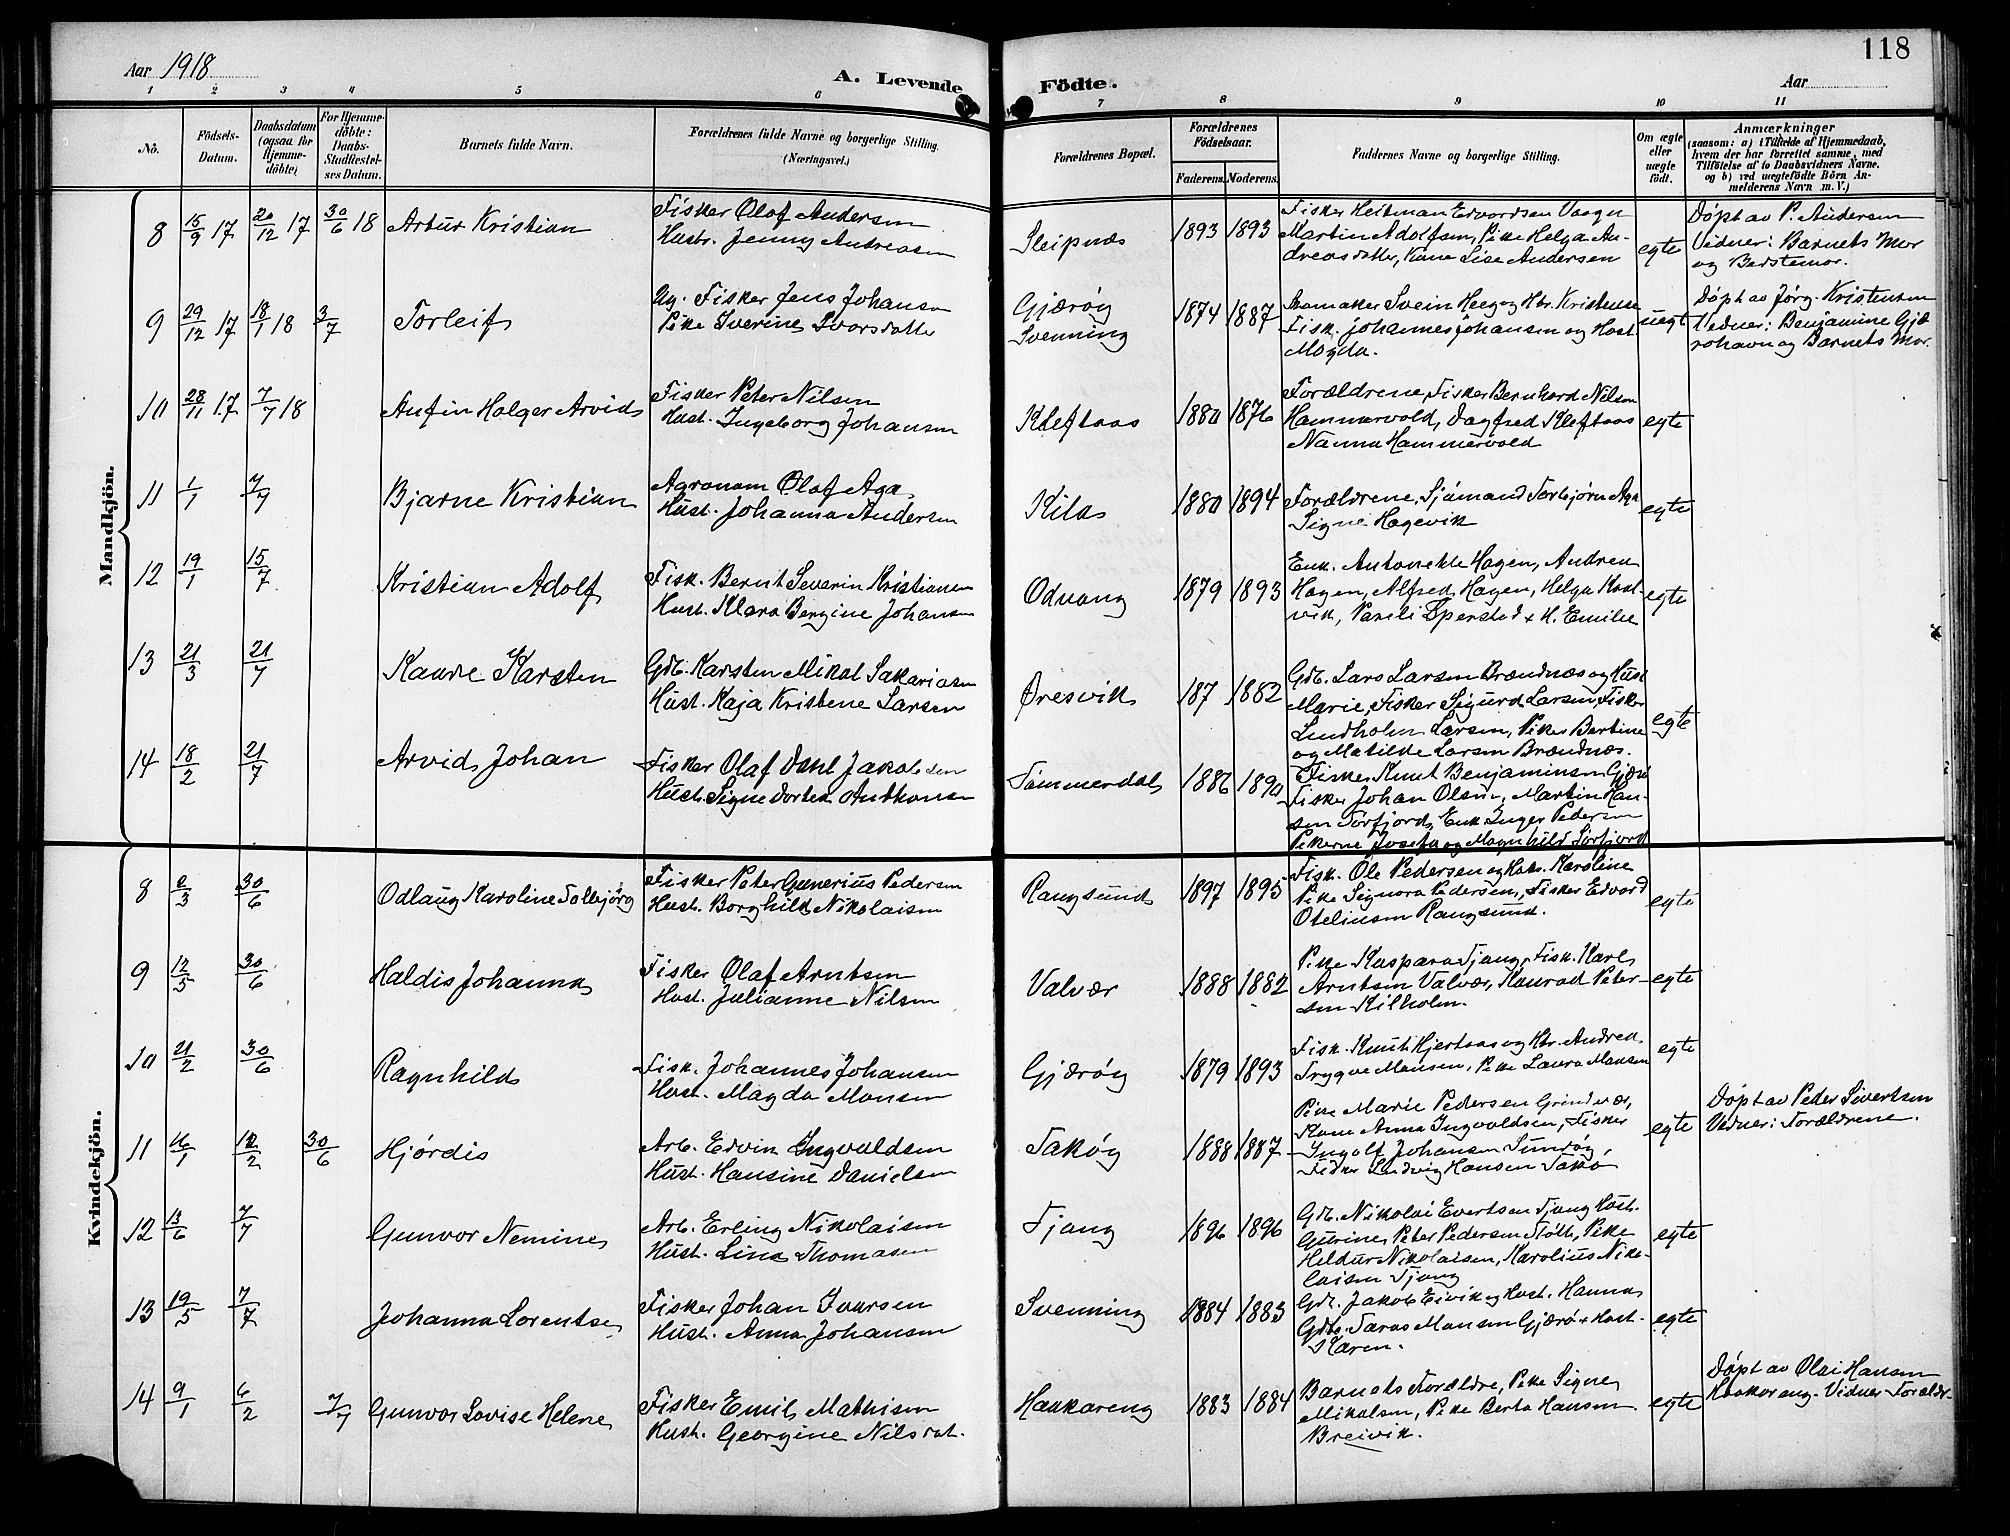 Aar 1918
A. Levende
Födte.
Aar
118
1 2 3 4 5 6 7 8 9 10 11
No.
Födsels-
Datum.
Daabsdatum
(ogsaa for
Hjemme-
döbte)
For Hjemme-
döbte:
Daabs-
Stadfæstel-
ses Datum.
Barnets fulde Navn.
Forældrenes fulde Navne og borgerlige Stilling.
(Næringsvei.)
Forældrenes Bopæl.
Forældrenes
Födselsaar.
Faderens. Moderens.
Faddernes Navne og borgerlige Stilling.
Om ægte
eller
uægte
födt.
Anmærkninger
(saasom: a) i Tilfælde af Hjemmedaab,
hvem der har forrettet samme, med
Tilföielse af to Daabsvidners Navne.
og b) ved uægtefödte Börn An-
melderens Navn m. V.)
Mandkjön.
8 15/9 17 20/12 17 30/6 18 Artur Kristian
Fisker Olaf Andersen
Hustr. Jenny Andreasen
Sleipnæs
1893 1893
Fisker Heitman Edvardsen Vaagn
Martin Adolfsen, Pike Helga An-
dreasdatter, Kone Lise Andersen
egte
Døpt av P. Andersen
Vidner: Barnets Mor
og Bedstemor.
9 29/12 17 18/1 18 3/7 Torleif
Ug. Fisker Jens Johansen
Pike Iverine Ivarsdatter
Gjærøy
Svenning
1874 1887
Skomaker Svein Heeg og Htr. Kristense
Fisk. Johannes Johansen og Hust.
Magda.
uegt
Døpt av Jørg. Kristensen
Vidner: Benjamine Gjæ
røhavn og Barnets Mor.
10 28/11 17 7/7 18 Anfin Holger Arvid
Fisker Peter Nilsen
Hust. Ingeborg Johansen
Kleftaas
1880 1876
Forældrene, Fisker Bernhard Nilsen
Hammervold, Dagfred Kleftaas
Nanna Hammervold
egte
11 1/1 7/7 Bjarne Kristian
Agronom Olaf Aga
Hust. Johanna Andersen
Kila
1880 1894
Forældrene, Sjømand Torbjørn Aga
Signe Hagevik
egte
12 19/1 15/7 Kristian Adolf
Fisk. Bernt Severin Kristiansen
Hust. Klara Bergine Johansen
Odvang
1879 1893
Enk. Antonette Hagen, Andrea
Hagen, Alfred Hagen, Helga Kvst-
vik, Sperstad + H. Emilie
egte
13 21/3 21/7 Kaare Karsten
Gdb. Karsten Mikal Sakariasen
Hust. Kaja Kristene Larsen
Øresvik
187 1882
Gdb. Lars Larsen Brændnæs og Hust
Marie, Fisker Sigurd Larsen, Fisker
Lindholm Larsen, Piker Bertine
og Matilde Larsen Brændnæs.
egte
14 18/2 21/7 Arvid Johan
Fisker Olaf Dahl Jakobsen
Hust. Signe Dortea
Tømmerdal
1886 1890
Fisker Knut Benjaminsen Gjærø
Fisker Johan Olsen, Martin Han-
sen Sørfjord, Enk. Inger Pedersen
Pikerne Josefa og Magnhild Sørfjord
Kvindekjön.
8 2/3 30/6 Odlaug Karoline Solbjørg
Fisker Peter Gunerius Pedersen
Hust. Borghild Nikolaisen
Rangsund
1897 1895
Fisk. Ole Pedersen og Hstr. Karoline
Pike Signora Pedersen, Fisker Edvard
Oteliusen Rangsund.
egte
9 12/5 30/6 Haldis Johanna
Fisker Olaf Arntsen
Hust. Julianne Nilsen
Valvær
1888 1882
Pike Kaspara Tjang, Fisk. Karl
Arntsen Valvær, Konrad Peter-
sen Kilholm.
egte
10 21/2 30/6 Ragnhild
Fisk. Johannes Johansen
Hust. Magda Monsen
Gjærøy
1879 1893
Fisk. Knut Hjertaas og Htr. Andrea
Trygve Monsen, Pike Laura Monsen
egte
11 16/1 12/2 30/6 Hjørdis
Arb. Edvin Ingvaldsen
Hust. Hansine Danielsen
Sakøy
1888 1887
Pike Marie Pedersen Grindvær,
Kone Anna Ingvaldsen, Fisker
Ingolf Johansen Sundøy,
Fisker Ludvig Hansen Sakø
egte
Døpt av Peder Sivertsen
Vidner: Forældrene.
12 13/6 7/7 Gunvor Nemine
Arb. Erling Nikolaisen
Hust. Lina Thomasen
Tjang
1896 1896
Gdb. Nikolai Evertsen Tjang Hust.
Gurine, Peter Pedersen Støtt, Pike
Heldur Nikolaisen, Karolius Niko-
laisen Tjang
egte
13 19/5 7/7 Johanna Lorentse
Fisker Johan Ivarsen
Hust. Anna Johansen
Svenning
1884 1883
Gdb. Jakob Eivik og Hust. Hanna
Gdbr. Taras Monsen Gjærø + Hust.
Karen.
egte
14 9/1 6/2 7/7 Gunvor Lovise Helene
Fisker Emil Mathisen
Hust. Georgine Nilsdat.
Haakareng
1883 1884
Barnets Forældre, Pike Signe
Mikalsen, Pike Berta Hansen
Breivik.
egte
Døpt av Olai Hansen
Haakoreng. Vidner Forældr.